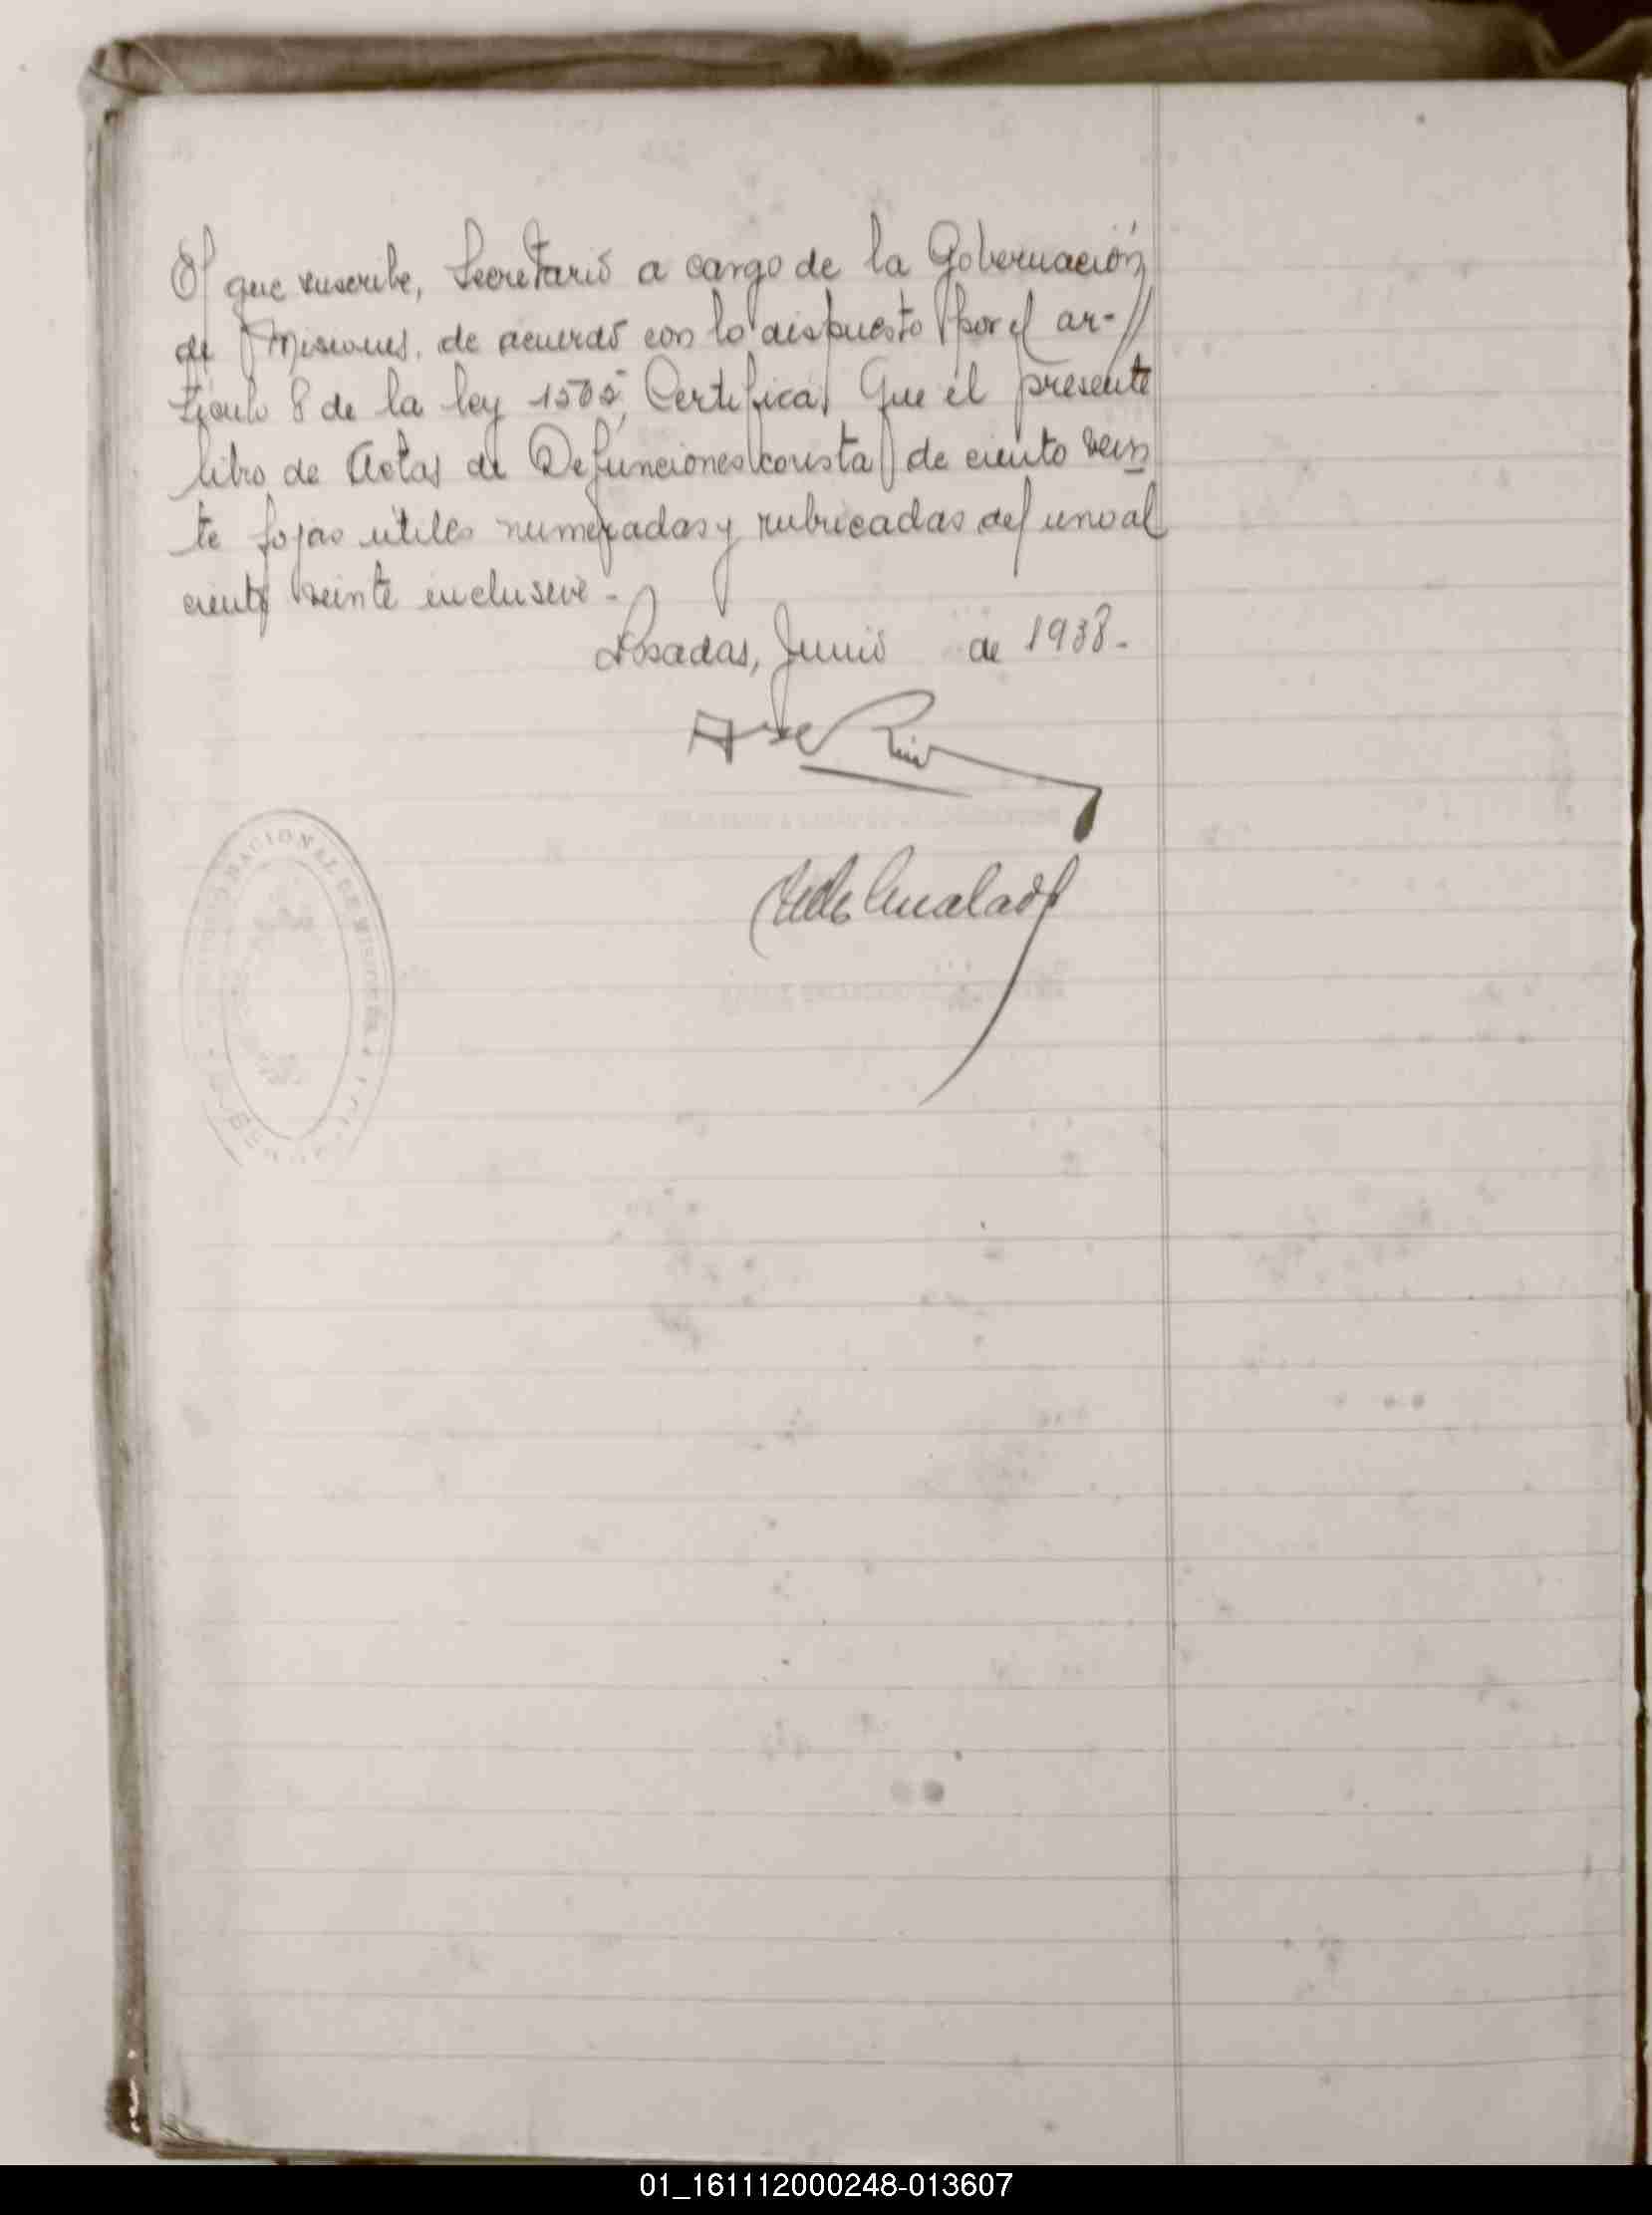 El que suscribe, Secretario a cargo de la Gobernación
de Misiones, de acuerdo con lo dispuesto por el ar-//
tículo 8 de la ley 1565, Certifica: Que el presente
libro de Actas de Defunciones consta de ciento vein
te fojas útiles numeradas y rubricadas del uno al
ciento veinte inclusive -
Posadas, Junio de 1938.-
NACIONAL DE MISIONES
01_161112000248-013607